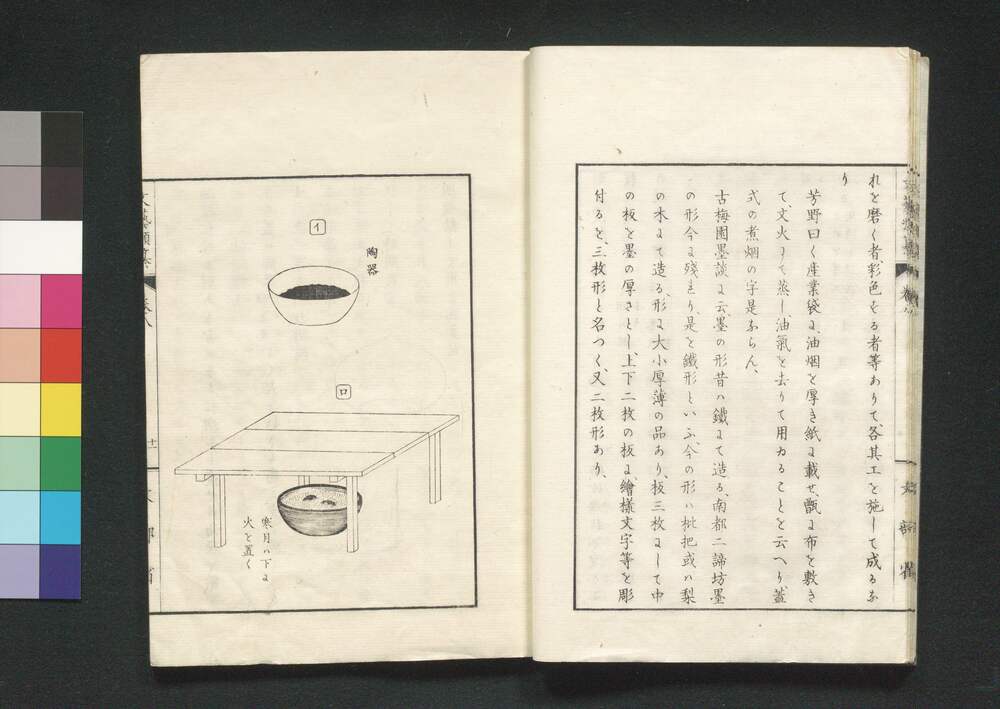 れを磨く者、彩色をる者等ありて、各其工を施して成るな
り
芳野曰く産業袋に、油烟を厚き紙に載せ、甑に布を敷き
て、文火にて蒸し、油氣を去りて用ゐることを云へり、蓋
式の煮烟の字是ならん、
古梅園墨談に云、墨の形昔ハ鐵にて造る、南都二諦坊墨
の形今に残れり、是を鐵形といふ、今の形ハ枇把或ハ梨
の木にて造る、形に大小厚薄の品あり、板三枚にして中
の板を墨の厚さとし、上下二枚の板に、繪様文字等を彫
付ると、三枚形と名つく、又二枚形あり、
イ
陶器
ロ
寒月ハ下に
火を置く
文藝類纂
卷八
十一
文部省